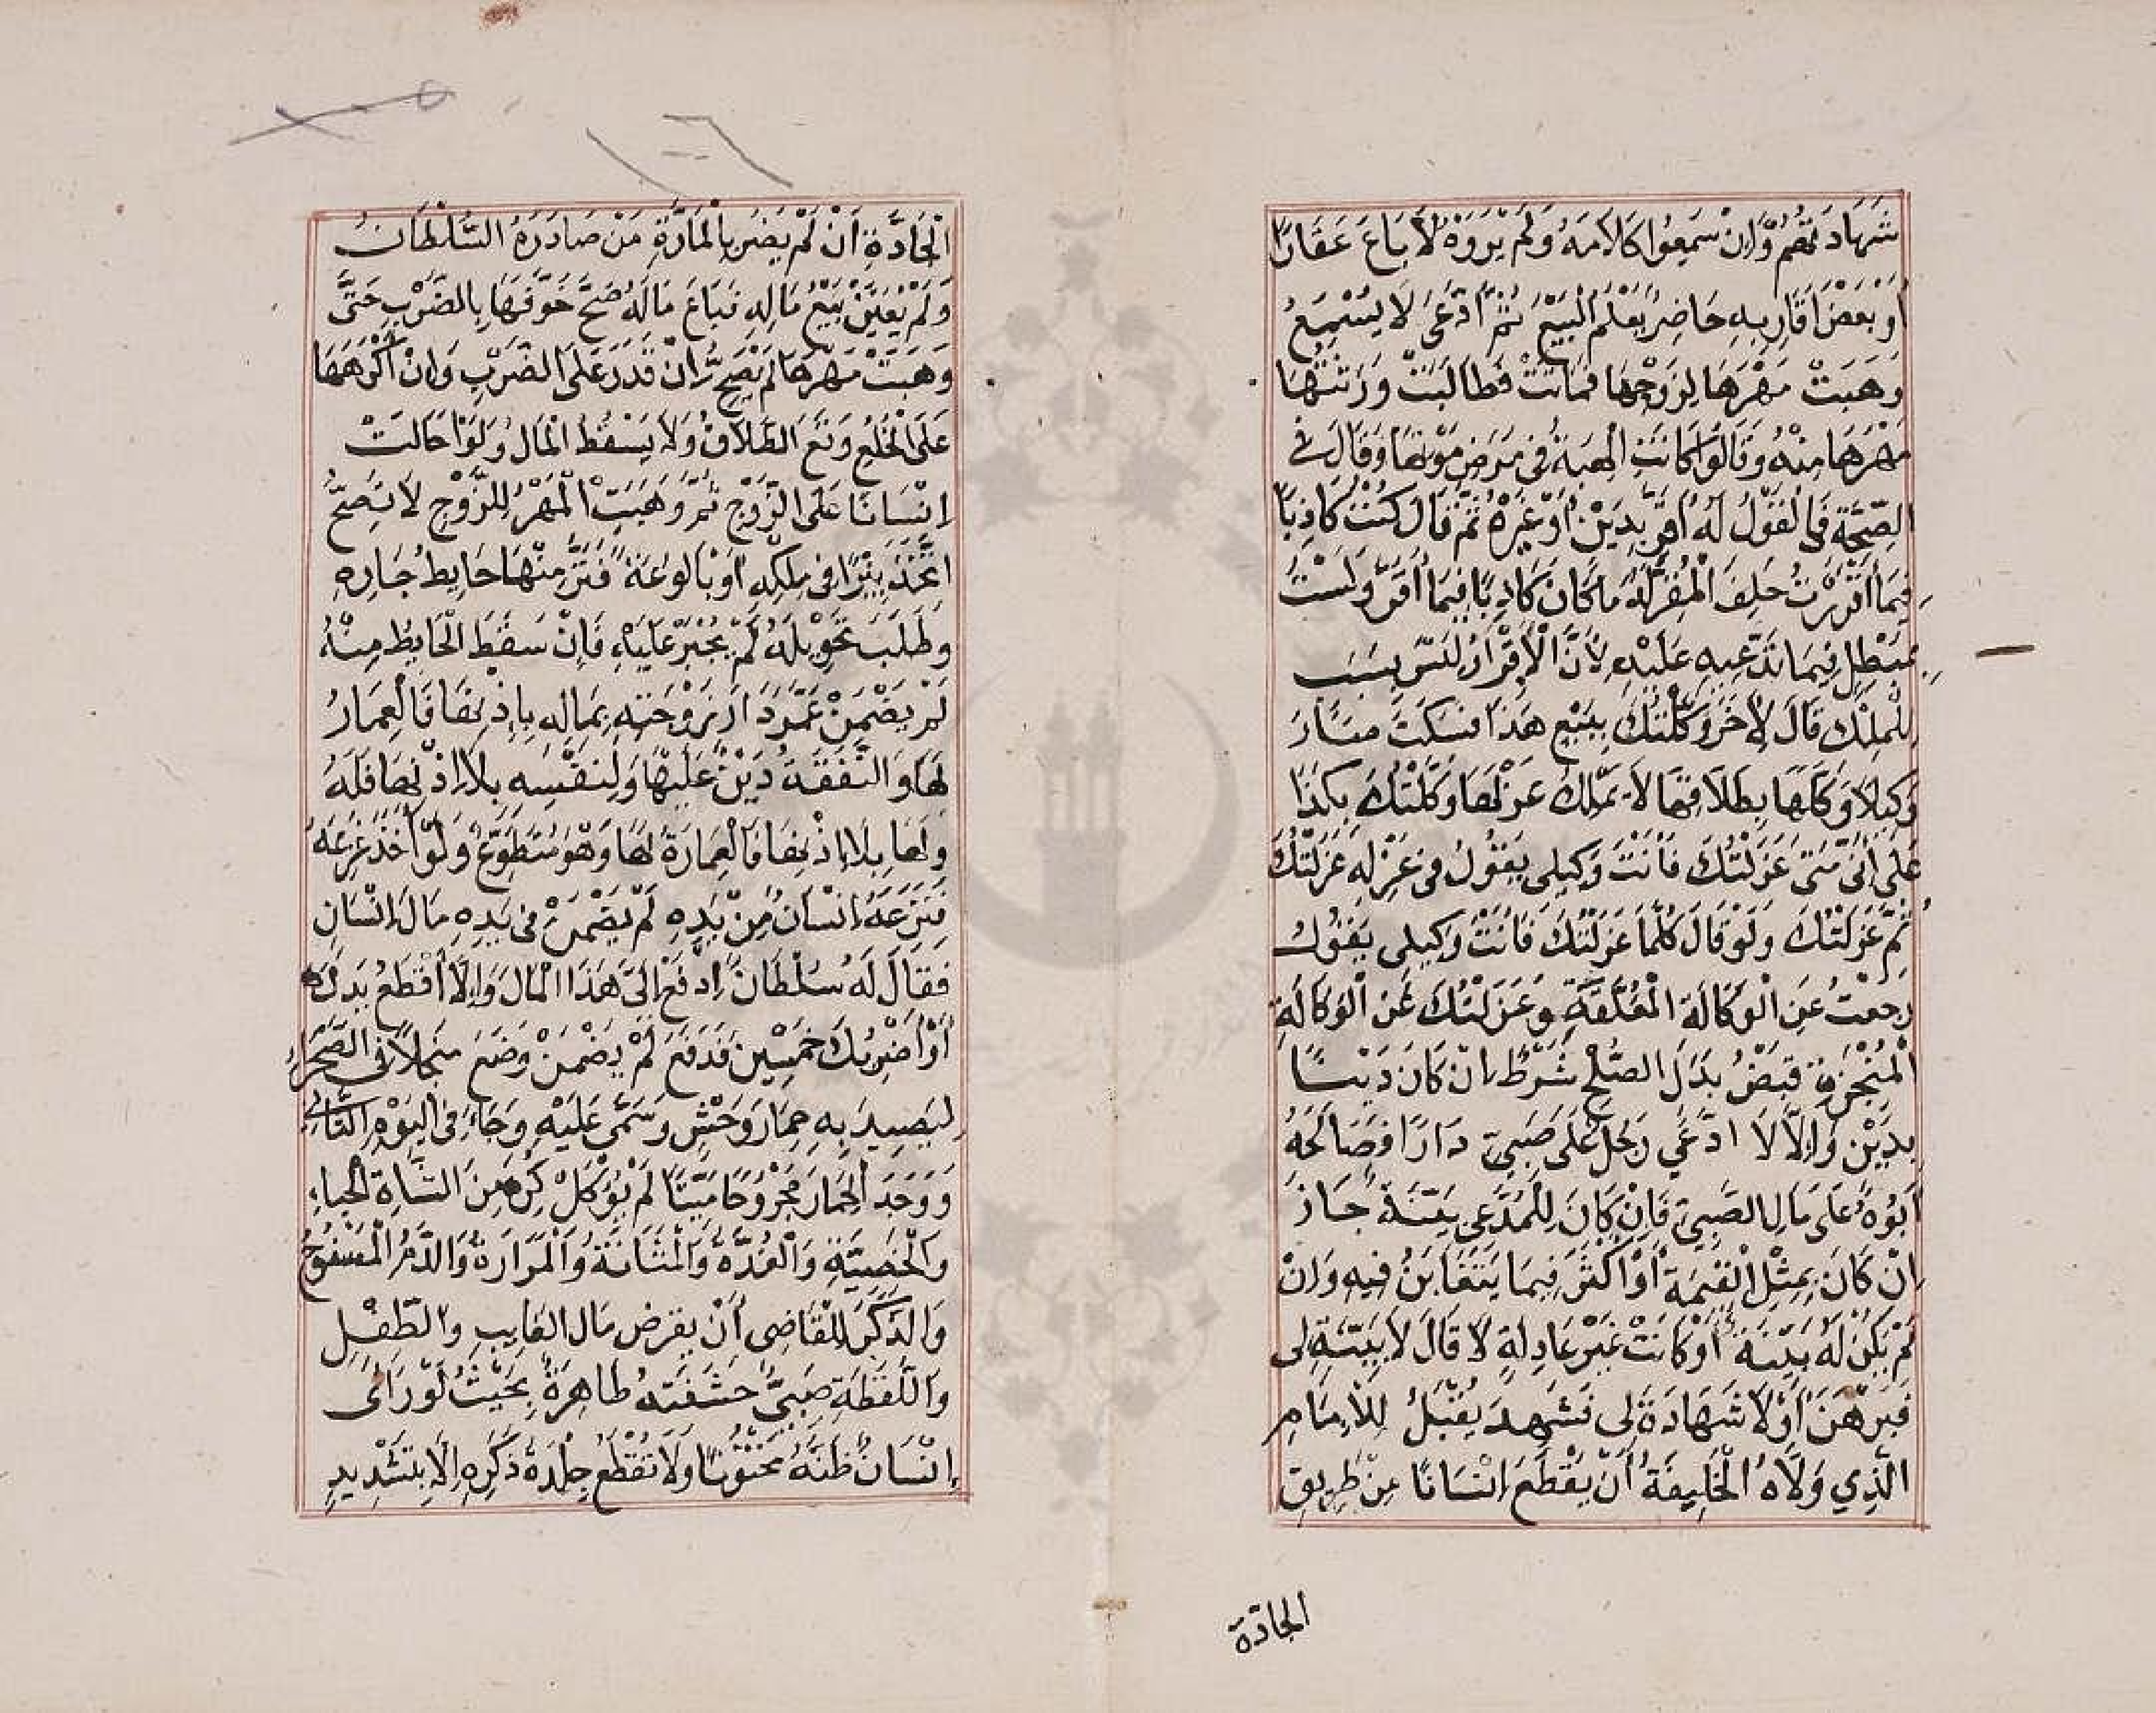 شَهَادَتُهُمْ وَّاِنْ سَمِعُوا كَلَامَهُ وَلَمْ يَرَوْهُ لَا بَاعَ عَقَارًا
اَوْ بَعْضُ اَقَارِبِهِ حَاضِرٌ يَعْلَمُ الْبَيْعَ ثُمَّ ادَّعَى لَا يُسْمِعُ
وَهَبَتْ مَهْرَهَا لِزَوْجِهَا فَمَاتَتْ فَطَالَبَتْ وَرَثَتُهَا
مَهْرَهَا مِنْهُ وَقَالُوا كَانَتِ الْهِبَةُ فِى مَرَضِ مَوْتِهَا وَقَالَ فِى
الصِّحَّةِ فَالْقَوْلُ لَهُ اَقَرَّ بِدَيْنٍ اَوْ غَيْرِهِ ثُمَّ قَالَ كُنْتُ كَاذِبًا
فِيمَا اَقْرَرْتُ حَلِفَ الْمُقَرُّ لَهُ مَا كَانَ كَاذِبًا فِيمَا اَقَرَّ وَلَسْتُ
بِمُبْطِلٍ فِيمَا تَدَّعِيهِ عَلَيْهِ لِاَنَّ الْاِقْرَارَ لَيْسَ بِسَبَبٍ
لِلْمِلْكِ قَالَ لِاٰخَرَ وَكَّلْتُكَ بِبَيْعِ هَذَا فَسَكَتَ صَارَ
وَكِيلًا وَكَّلَهَا بِطَلَاقِهَا لَا يَمْلِكُ عَزْلَهَا وَكَّلْتُكَ بِكَذَا
عَلَى اَنِّى مَتَى عَزَلْتُكَ فَاَنْتَ وَكِيلِى يَقُولُ فِى عَزْلِهِ عَزَلْتُكَ
ثُمَّ عَزَلْتُكَ وَلَوْ قَالَ كُلَّمَا عَزَلْتُكَ فَاَنْتَ وَكِيلِى يَقُولُ
رَجَعْتُ عَنِ الْوَكَالَةِ الْمُعَلَّقَةِ وَعَزَلْتُكَ عَنِ الْوَكَالَةِ
الْمُنْجَزَةِ قَبْضُ بَدَلِ الصُّلْحِ شَرْطٌ اِنْ كَانَ دَيْنًا
بِدَيْنٍ وَاِلَّا لَا ادَّعَى رَجُلٌ عَلَى صَبِىٍّ دَارًا فَصَالَحَهُ
اَبُوهُ عَلَى مَالِ الصَّبِىِّ فَاِنْ كَانَ لِلْمُدَّعِى بَيِّنَةٌ جَازَ
اِنْ كَانَ بِمِثْلِ الْقِيمَةِ اَوْ اَكْثَرَ فِيمَا يَتَغَابَنُ فِيهِ وَاِنْ
لَمْ يَكُنْ لَهُ بَيِّنَةٌ اَوْ كَانَتْ غَيْرَ عَادِلَةٍ لَا قَالَ لَا بَيِّنَةَ لِى
فَبَرْهَنَ اَوْ لَا شَهَادَةَ لِى فَشَهِدَ يُقْبَلُ لِلْاِمَامِ
الَّذِي وَلَّاهُ الْخَلِيفَةُ اَنْ يُقْطِعَ اِنْسَانًا مِنْ طَرِيقِ
الجادّة
الْجَادَّةِ اَنْ لَمْ يَضُرَّ بِالْمَارَّةِ مَنْ صَادَرَهُ السُّلْطَانُ
وَلَمْ يُعَيِّنْ بَيْعَ مَالِهِ فَبَاعَ مَالَهُ صَحَّ خَوَّفَهَا بِالضَّرْبِ حَتَّى
وَهَبَتْ مَهْرَهَا لَمْ تَصِحَّ اِنْ قَدَرَ عَلَى الضَّرْبِ وَاِنْ اَكْرَهَهَا
عَلَى الْخُلْعِ وَقَعَ الطَّلَاقُ وَلَا يَسْقُطُ الْمَالُ وَلَوْ اَحَالَتْ
اِنْسَانًا عَلَى الزَّوْجِ ثُمَّ وَهَبَتِ الْمَهْرَ لِلزَّوْجِ لَا تَصِحُّ
اتَّخَذَ بِئْرًا فِى مِلْكِهِ اَوْ بَالُوعَةً فَنَزَّ مِنْهَا حَايِطُ جَارِهِ
وَطَلَبَ تَحْوِيلَهُ لَمْ يُجْبَرْ عَلَيْهِ فَاِنْ سَقَطَ الْحَايِطُ مِنْهُ
لَمْ يَضْمَنْ عَمَّرَ دَارَ زَوْجَتِهِ بِمَالِهِ بِاِذْنِهَا فَالْعِمَارُ
لَهَا وَالنَّفَقَةُ دَيْنٌ عَلَيْهَا وَلِنَفْسِهِ بِلَا اِذْنِهَا فَلَهُ
وَلَهَا بِلَا اِذْنِهَا فَالْعِمَارَةُ لَهَا وَهُوَ مُتَطَوِّعٌ وَلَوْ اَخَذَ غَرِيمَهُ
فَنَزَعَهُ اِنْسَانٌ مِنْ يَدِهِ لَمْ يَضْمَنْ فِى يَدِهِ مَالُ اِنْسَانٍ
فَقَالَ لَهُ سُلْطَانٌ اِدْفَعْ اِلَىَّ هَذَا الْمَالَ وَاِلَّا اَقْطَعُ يَدَكَ
اَوْ اَضْرِبُكَ خَمْسِينَ فَدَفَعَ لَمْ يَضْمَنْ وَضَعَ مِنْجَلًا فِى الصَّحْرَاءِ
لِيَصِيدَ بِهِ حِمَارَ وَحْشٍ وَسَمَّى عَلَيْهِ وَجَاءَ فِى الْيَوْمِ الثَّانِى
وَوَجَدَ الْحِمَارَ مَجْرُوحًا مَيْتًا لَمْ يُؤْكَلْ كُرِهَ مِنَ الشَّاةِ الْحَيَاءُ
وَالْخُصْيَةُ وَالْغُدَّةُ وَالْمَثَانَةُ وَالْمَرَارَةُ وَالدَّمُ الْمَسْفُوحُ
وَالذَّكَرُ لِلْقَاضِى اَنْ يقرض مَال الغَايِبِ وَالطِّفْلِ
وَاللُّقَطَةِ صَبِىٌّ حَشَفَتُهُ ظَاهِرَةٌ بِحَيْثُ لَوْ رَاٰى
اِنْسَانٌ ظَنَّهُ مَخْتُونًا وَلَا تُقْطَعُ جِلْدَةُ ذَكَرِهِ اِلَّا بِتَشْدِيدٍ